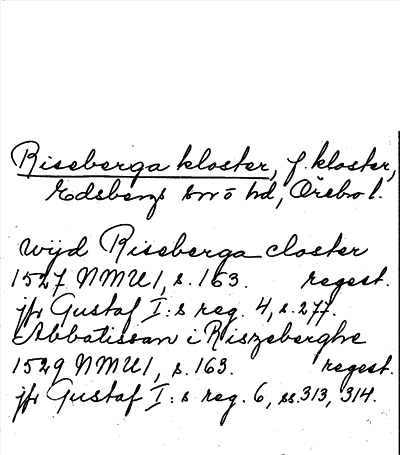 Riseberga kloster, f. kloster,
Edsbergs sn o hd, Örebro l.
wijd Riseberga closter
1527 NMU 1, s. 163. regest.
jfr Gustaf I:s reg. 4, s. 277.
Abbatissan i Riszeberghe
1529 NMU 1, s. 163. regest.
jfr Gustaf I:s reg. 6, ss. 313, 314.